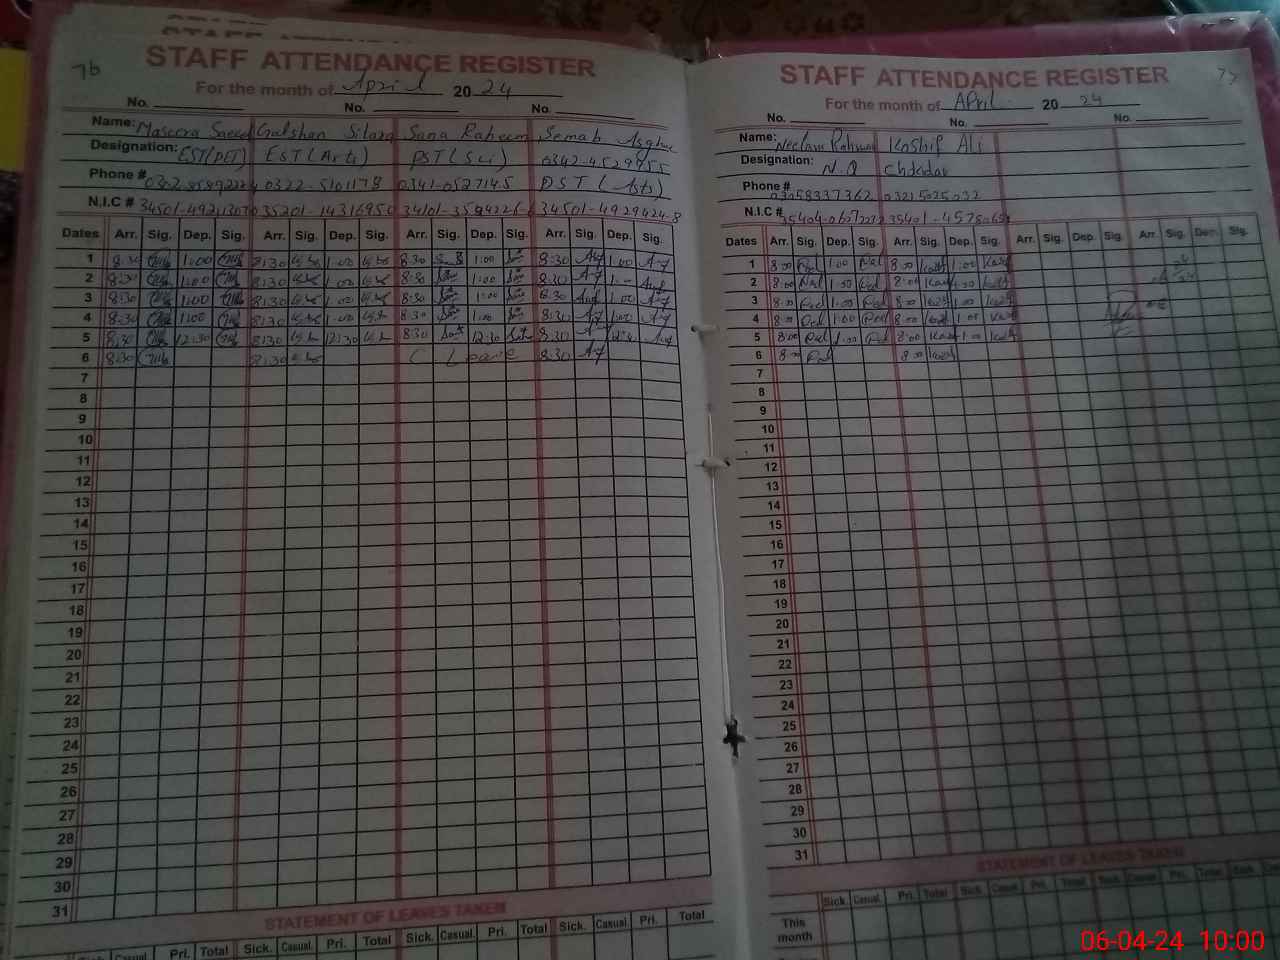 76
STAFF ATTENDANCE REGISTER
For the month of April 20 24
No. No. No.
Name: Saeed Gulshan Sitara Sana Raheem Semab Asghar
Designation: EST(PET) EST(Arts) PST(Sci) 0342-4529755
Phone # 0322-5101178 0341-0527145 PST(Arts)
N.I.C # 35201-1431695 34501-4929424-8
Dates Arr. Sig. Dep. Sig. Arr. Sig. Dep. Sig. Arr. Sig. Dep. Sig. Arr. Sig. Dep. Sig.
1 8:30 1:00 8:30 1:00 8:30 1:00 8:30 1:00
2 8:30 1:00 8:30 1:00 8:30 1:00 8:30 1:00
3 8:30 1:00 8:30 1:00 8:30 1:00 8:30 1:00
4 8:30 1:00 8:30 1:00 8:30 1:00 8:30 1:00
5 8:30 12:30 8:30 12:30 8:30 12:30 8:30
6 8:30 8:30 C Leave 8:30
7
8
9
10
11
12
13
14
15
16
17
18
19
20
21
22
23
24
25
26
27
28
29
30
31
STATEMENT OF LEAVES TAKEN
Sick. Casual. Pri. Total Sick. Casual. Pri. Total Sick. Casual. Pri. Total Sick. Casual. Pri. Total
77
STAFF ATTENDANCE REGISTER
For the month of April 20 24
No. No. No.
Name: Neelam Rahman Kashif Ali
Designation: N.Q Chokidar
Phone # 03058337362 03215025022
N.I.C #
Dates Arr. Sig. Dep. Sig. Arr. Sig. Dep. Sig. Arr. Sig. Dep. Sig. Arr. Sig. Dep. Sig.
1 8:00 1:00 8:00 Kashf 1:00 Kashf
2 8:00 1:00 8:00 Kashf 1:00 Kashf
3 8:00 1:00 8:00 Kashf 1:00 Kashf
4 8:00 1:00 8:00 Kashf 1:00 Kashf
5 8:00 1:00 8:00 Kashf 1:00 Kashf
6 8:00 8:00 Kashf
7
8
9
10
11
12
13
14
15
16
17
18
19
20
21
22
23
24
25
26
27
28
29
30
31
STATEMENT OF LEAVES TAKEN
Sick. Casual. Pri. Total Sick. Casual. Pri. Total Sick. Casual. Pri. Total Sick. Casual.
This month
06-04-24 10:00